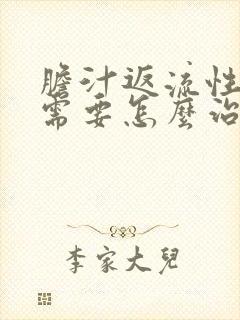 膽汁返流性
需要怎麼治
李家大兒